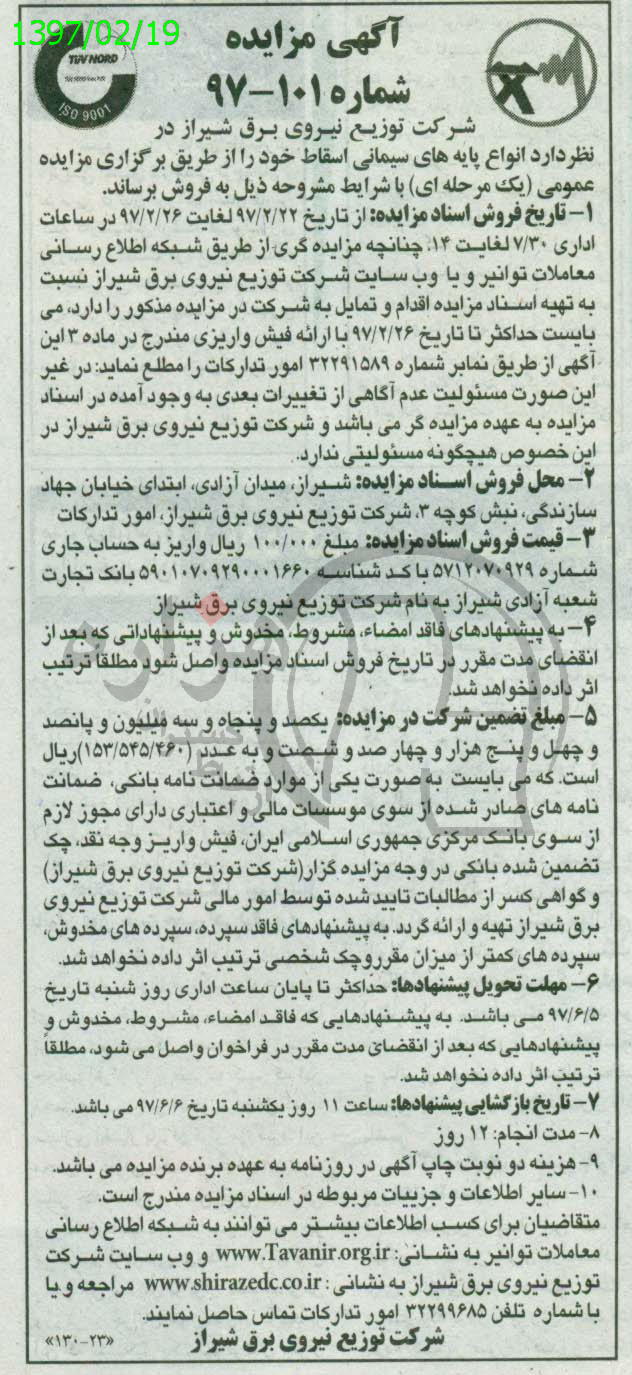 1397/02/19
آگهی مزایده
شماره ۱۰۱-۹۷
TÜV NORD
ISO 9001
شرکت توزیع نیروی برق شیراز در
نظردارد انواع پایه های سیمانی اسقاط خود را از طریق برگزاری مزایده
عمومی (یک مرحله ای) با شرایط مشروحه ذیل به فروش برساند.
۱- تاریخ فروش اسناد مزایده: از تاریخ ۹۷/۲/۲۲ لغایت ۹۷/۲/۲۶ در ساعات
اداری ۷/۳۰ لغایت ۱۴، چنانچه مزایده گری از طریق شبکه اطلاع رسانی
معاملات توانیر و یا وب سایت شرکت توزیع نیروی برق شیراز نسبت
به تهیه اسناد مزایده اقدام و تمایل به شرکت در مزایده مذکور را دارد، می
بایست حداکثر تا تاریخ ۹۷/۲/۲۶ با ارائه فیش واریزی مندرج در ماده ۳ این
آگهی از طریق نمابر شماره ۳۲۲۹۱۵۸۹ امور تدارکات را مطلع نماید: در غیر
این صورت مسئولیت عدم آگاهی از تغییرات بعدی به وجود آمده در اسناد
مزایده به عهده مزایده گر می باشد و شرکت توزیع نیروی برق شیراز در
این خصوص هیچگونه مسئولیتی ندارد.
۲- محل فروش اسناد مزایده: شیراز، میدان آزادی، ابتدای خیابان جهاد
سازندگی، نبش کوچه ۳، شرکت توزیع نیروی برق شیراز، امور تدارکات
۳- قیمت فروش اسناد مزایده: مبلغ ۱۰۰/۰۰۰ ریال واریز به حساب جاری
شماره ۵۷۱۲۰۷۰۹۲۹ با کد شناسه ۵۹۰۱۰۷۰۹۲۹۰۰۰۱۶۶۰ بانک تجارت
شعبه آزادی شیراز به نام شرکت توزیع نیروی برق شیراز
۴- به پیشنهادهای فاقد امضاء، مشروط، مخدوش و پیشنهاداتی که بعد از
انقضای مدت مقرر در تاریخ فروش اسناد مزایده واصل شود مطلقا ترتیب
اثر داده نخواهد شد.
۵- مبلغ تضمین شرکت در مزایده: یکصد و پنجاه و سه میلیون و پانصد
و چهل و پنج هزار و چهار صد و شصت و به عدد (۱۵۳/۵۴۵/۴۶۰)ریال
است. که می بایست به صورت یکی از موارد ضمانت نامه بانکی، ضمانت
نامه های صادر شده از سوی موسسات مالی و اعتباری دارای مجوز لازم
از سوی بانک مرکزی جمهوری اسلامی ایران، فیش واریز وجه نقد، چک
تضمین شده بانکی در وجه مزایده گزار(شرکت توزیع نیروی برق شیراز)
و گواهی کسر از مطالبات تایید شده توسط امور مالی شرکت توزیع نیروی
برق شیراز تهیه و ارائه گردد. به پیشنهادهای فاقد سپرده، سپرده های مخدوش،
سپرده های کمتر از میزان مقرر وچک شخصی ترتیب اثر داده نخواهد شد.
۶- مهلت تحویل پیشنهادها: حداکثر تا پایان ساعت اداری روز شنبه تاریخ
۹۷/۶/۵ می باشد. به پیشنهادهایی که فاقد امضاء، مشروط، مخدوش و
پیشنهادهایی که بعد از انقضای مدت مقرر در فراخوان واصل می شود، مطلقاً
ترتیب اثر داده نخواهد شد.
۷- تاریخ بازگشایی پیشنهادها: ساعت ۱۱ روز یکشنبه تاریخ ۹۷/۶/۶ می باشد.
۸- مدت انجام: ۱۲ روز
۹- هزینه دو نوبت چاپ آگهی در روزنامه به عهده برنده مزایده می باشد.
۱۰- سایر اطلاعات و جزییات مربوطه در اسناد مزایده مندرج است.
متقاضیان برای کسب اطلاعات بیشتر می توانند به شبکه اطلاع رسانی
معاملات توانیر به نشانی: www.Tavanir.org.ir و وب سایت شرکت
توزیع نیروی برق شیراز به نشانی : www.shirazedc.co.ir مراجعه و یا
با شماره تلفن ۳۲۲۹۹۶۸۵ امور تدارکات تماس حاصل نمایند.
شرکت توزیع نیروی برق شیراز
«۱۳۰-۲۳»